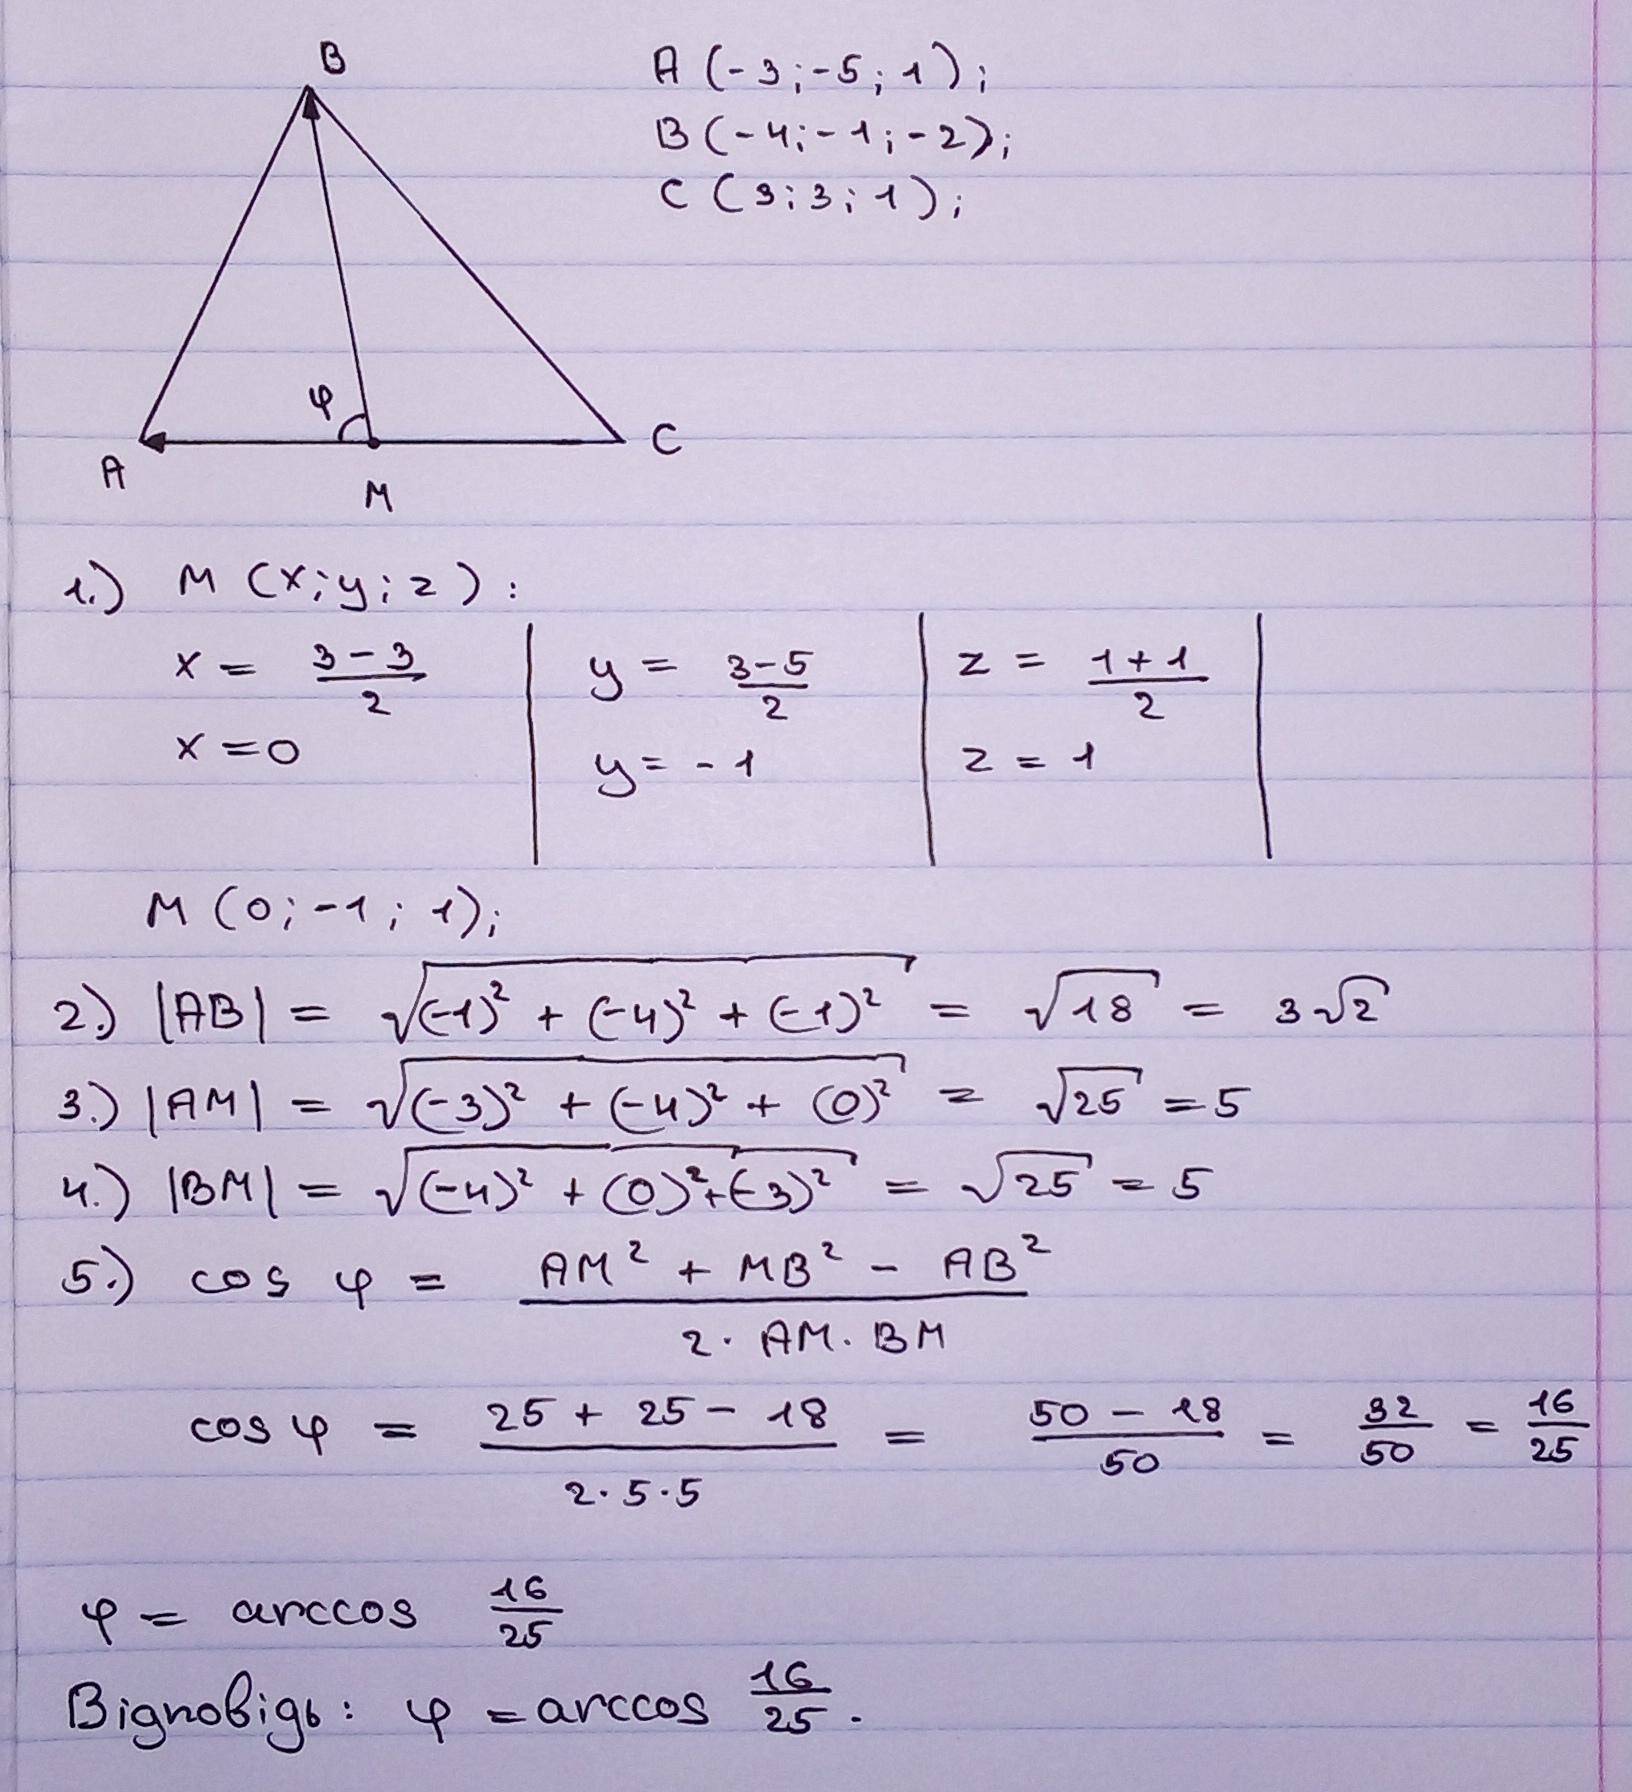 B
A (-3;-5;1);
B (-4;-1;-2);
C (3;3;1);
φ
A
M
C
1.) M (x;y;z):
x = (3-3)/2
x = 0
y = (3-5)/2
y = -1
z = (1+1)/2
z = 1
M (0;-1;1);
2.) |AB| = √((-1)² + (-4)² + (-1)²) = √18 = 3√2
3.) |AM| = √((-3)² + (-4)² + (0)²) = √25 = 5
4.) |BM| = √((-4)² + (0)² + (-3)²) = √25 = 5
5.) cos φ = (AM² + MB² - AB²)/(2·AM·BM)
cos φ = (25 + 25 - 18)/(2·5·5) = (50 - 18)/50 = 32/50 = 16/25
φ = arccos 16/25
Відповідь: φ = arccos 16/25.